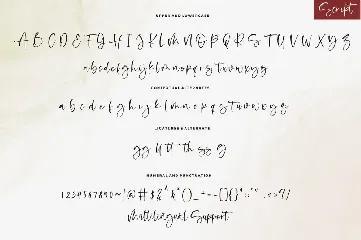 Script
UPPER AND LOWERCASE
A B C D E F G H I J K L M N O P Q R S T U V W X Y Z
a b c d e f g h i j k l m n o p q r s t u v w x y z
CONTEXTUAL ALTERNATES
a b c d e f g h i j k l m n o p q r s t u v w x y z
LIGATURES & ALTERNATE
gg tt th ss g
NUMERAL AND PUNCTUATION
1 2 3 4 5 6 7 8 9 0 ~ ! @ # $ % ^ & * ( ) _ + = - [ ] { }
Multilingual Support